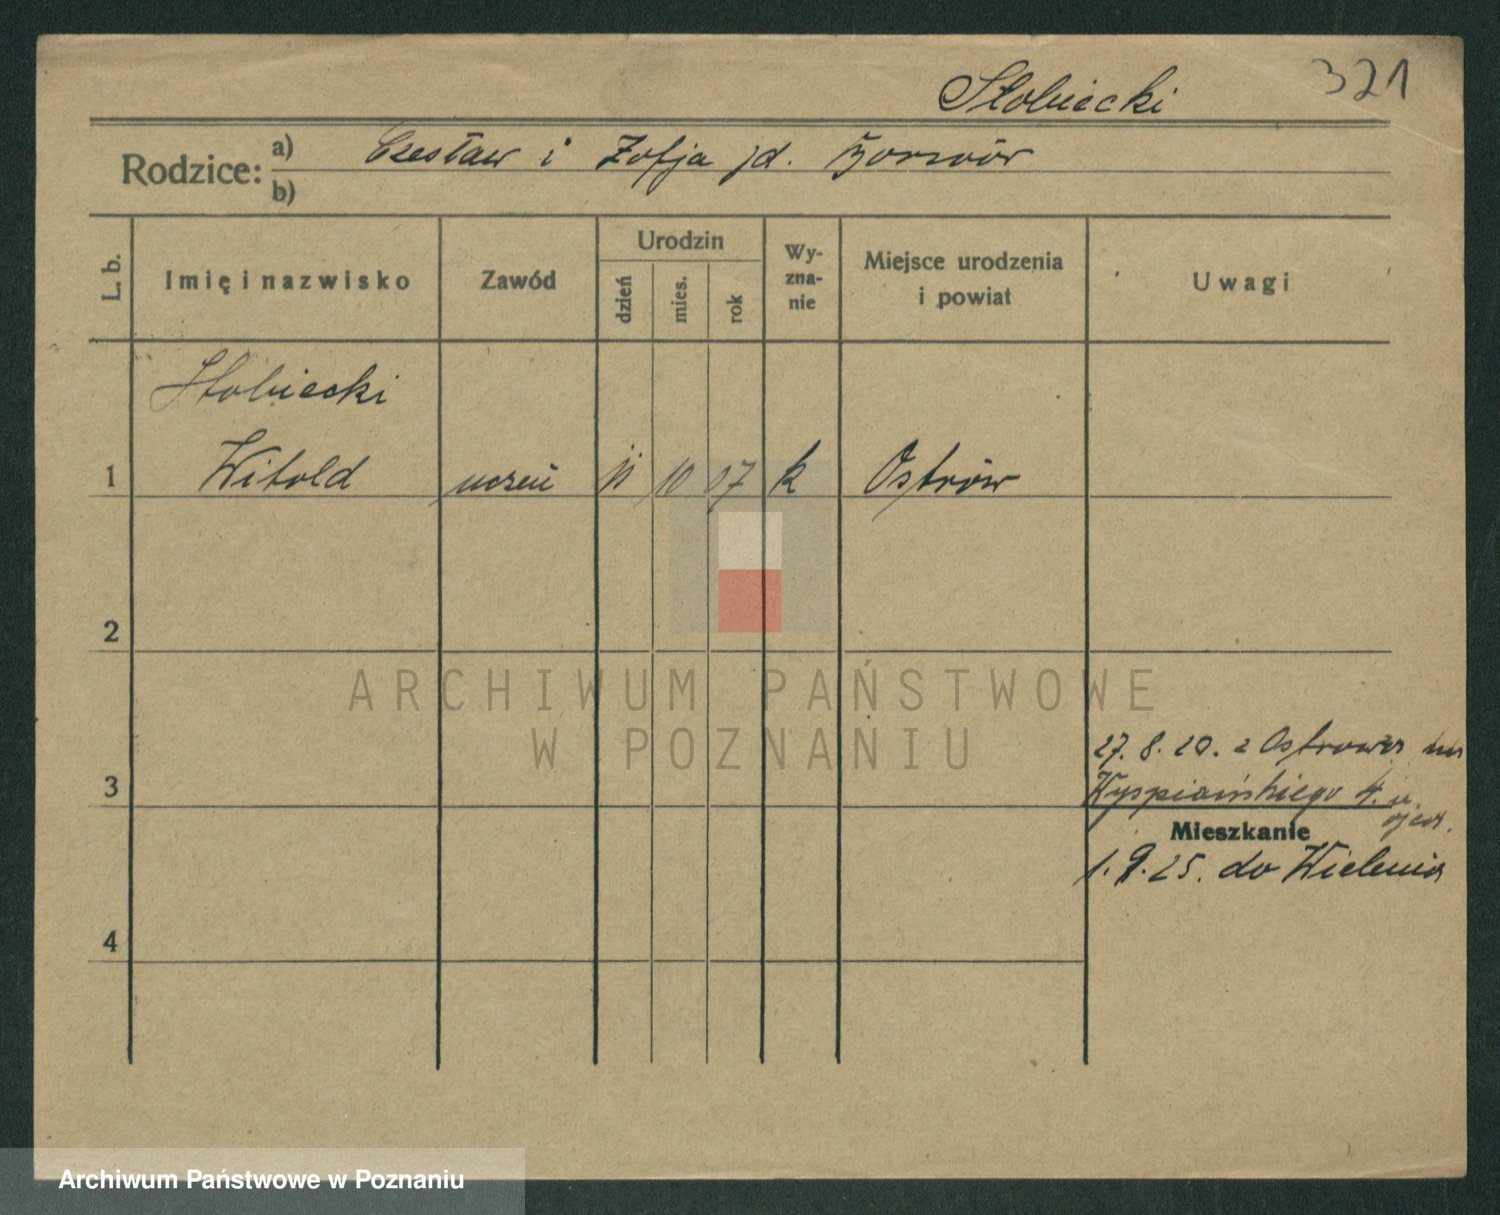 321
Słobiecki
Rodzice: a) Czesław i Zofja
b)
L. b. Imię i nazwisko Zawód Urodzin dzień mies. rok Wyznanie Miejsce urodzenia i powiat Uwagi
Słobiecki
1 Witold uczeń 11 10 07 k Ostrów
2
ARCHIWUM PAŃSTWOWE
W POZNANIU
27. 8. 20. z Ostrowa
3 Wyspiańskiego 4.
Mieszkanie
1. 9. 25. do Wielunia
4
Archiwum Państwowe w Poznaniu